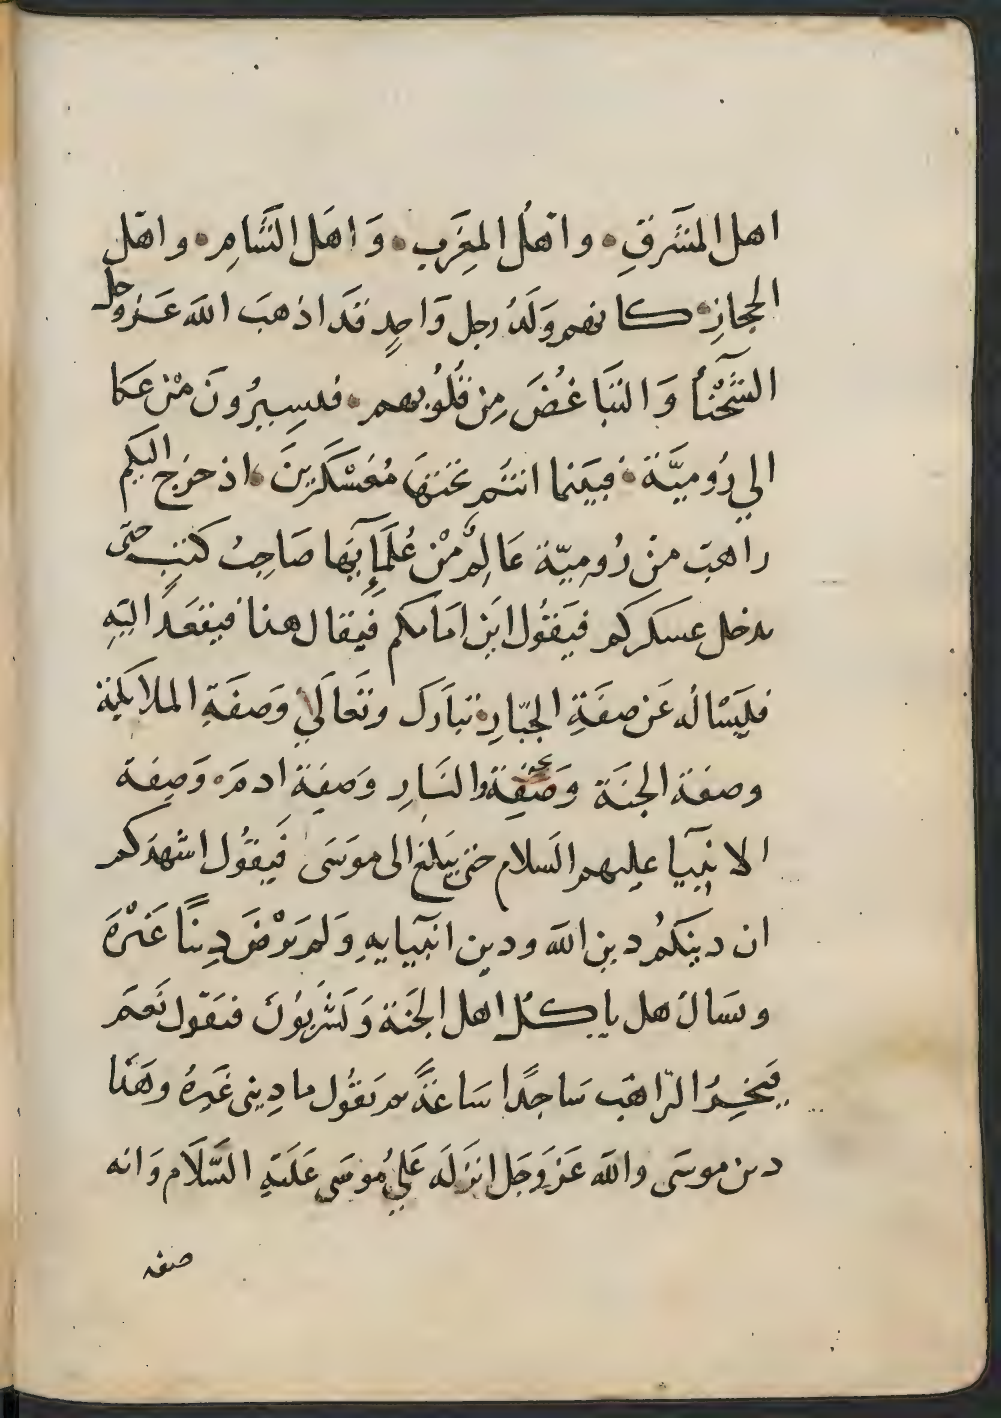 اهل المشَرقِ • واهلُ المغِرَب • وَاهَل الشَّامِ • واهَل
الحجازِ • كانهم وَلَدُ رجل وَاحِدٍ قَد اذهبَ اللهَ عَز وجل
الشَّحْنآ وَالتبَاغُضَ مِن قُلُوبهم • فيسِيرُونَ مْن عكا
الي رُوميَّة • فبيَنما انتُم تحَتهَا مُعَسْكَريَن • اذ خرَج اليكم
راهبَ منْ رُوميّة عَالِمٌ مْن عُلَمَآيَها صَاحِبُ كتبٍ حتى
يدخل عسكركم فيَقوُل ايَن امَامكم فَيقال هذا فيقعَد اليَهِ
فليَسْالُه عَن صفَةِ الجبّارِ تبَارَك وتَعالَي وَصفَةِ الملايكِة
وصفة الجنَة وَصفِة والنَارِ وَصفِة ادمَ • وَصِفة
الانبيآ عليهم السَلام حتى يَبلغ الى موَسَى فَيقوُل اشهدَكم
ان دينكُم دين الله ودين انبيآيهِ وَلم يَرْضَ دِينًا غَيْرَهُ
وَيسَال هل ياكل اهل الجنَة وَيشَربُوُنَ فيَقوُل نَعَم
فيَخِرُ الرّاهبَ سَاجدًا سَاعَةً ثم يَقوُل ما دِيني غَيرهُ وهَذا
دين موسَى والله عَز وَجَل انزَلهَ عَليُ مُوسَى عَليَهِ السَّلَام وَانه
صفه